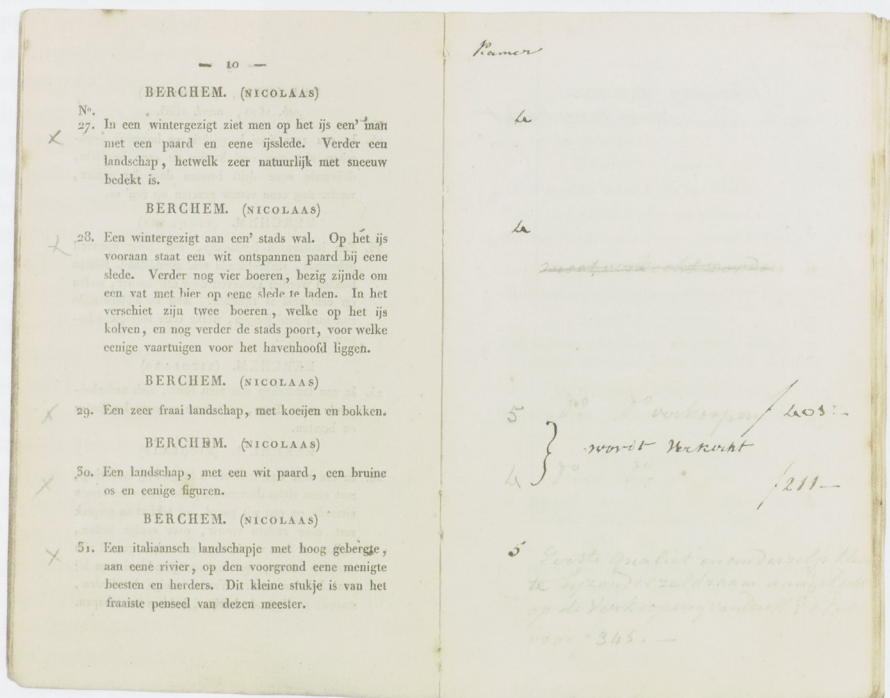 — 10 —
BERCHEM. (NICOLAAS)
No.
27. In een wintergezigt ziet men op het ijs een' man
met een paard en eene ijsslede. Verder een
landschap, hetwelk zeer natuurlijk met sneeuw
bedekt is.
BERCHEM. (NICOLAAS)
28. Een wintergezigt aan een' stads wal. Op het ijs
vooraan staat een wit ontspannen paard bij eene
slede. Verder nog vier boeren, bezig zijnde om
een vat met bier op eene slede te laden. In het
verschiet zijn twee boeren, welke op het ijs
kolven, en nog verder de stads poort, voor welke
eenige vaartuigen voor het havenhoofd liggen.
BERCHEM. (NICOLAAS)
29. Een zeer fraai landschap, met koeijen en bokken.
BERCHEM. (NICOLAAS)
30. Een landschap, met een wit paard, een bruine
os en eenige figuren.
BERCHEM. (NICOLAAS)
31. Een italiaansch landschapje met hoog gebergte,
aan eene rivier, op den voorgrond eene menigte
beesten en herders. Dit kleine stukje is van het
fraaiste penseel van dezen meester.
Kamer
5 verkoopen
wordt Verkocht
211 —
5 Eerste
te
op de
voor 345. —